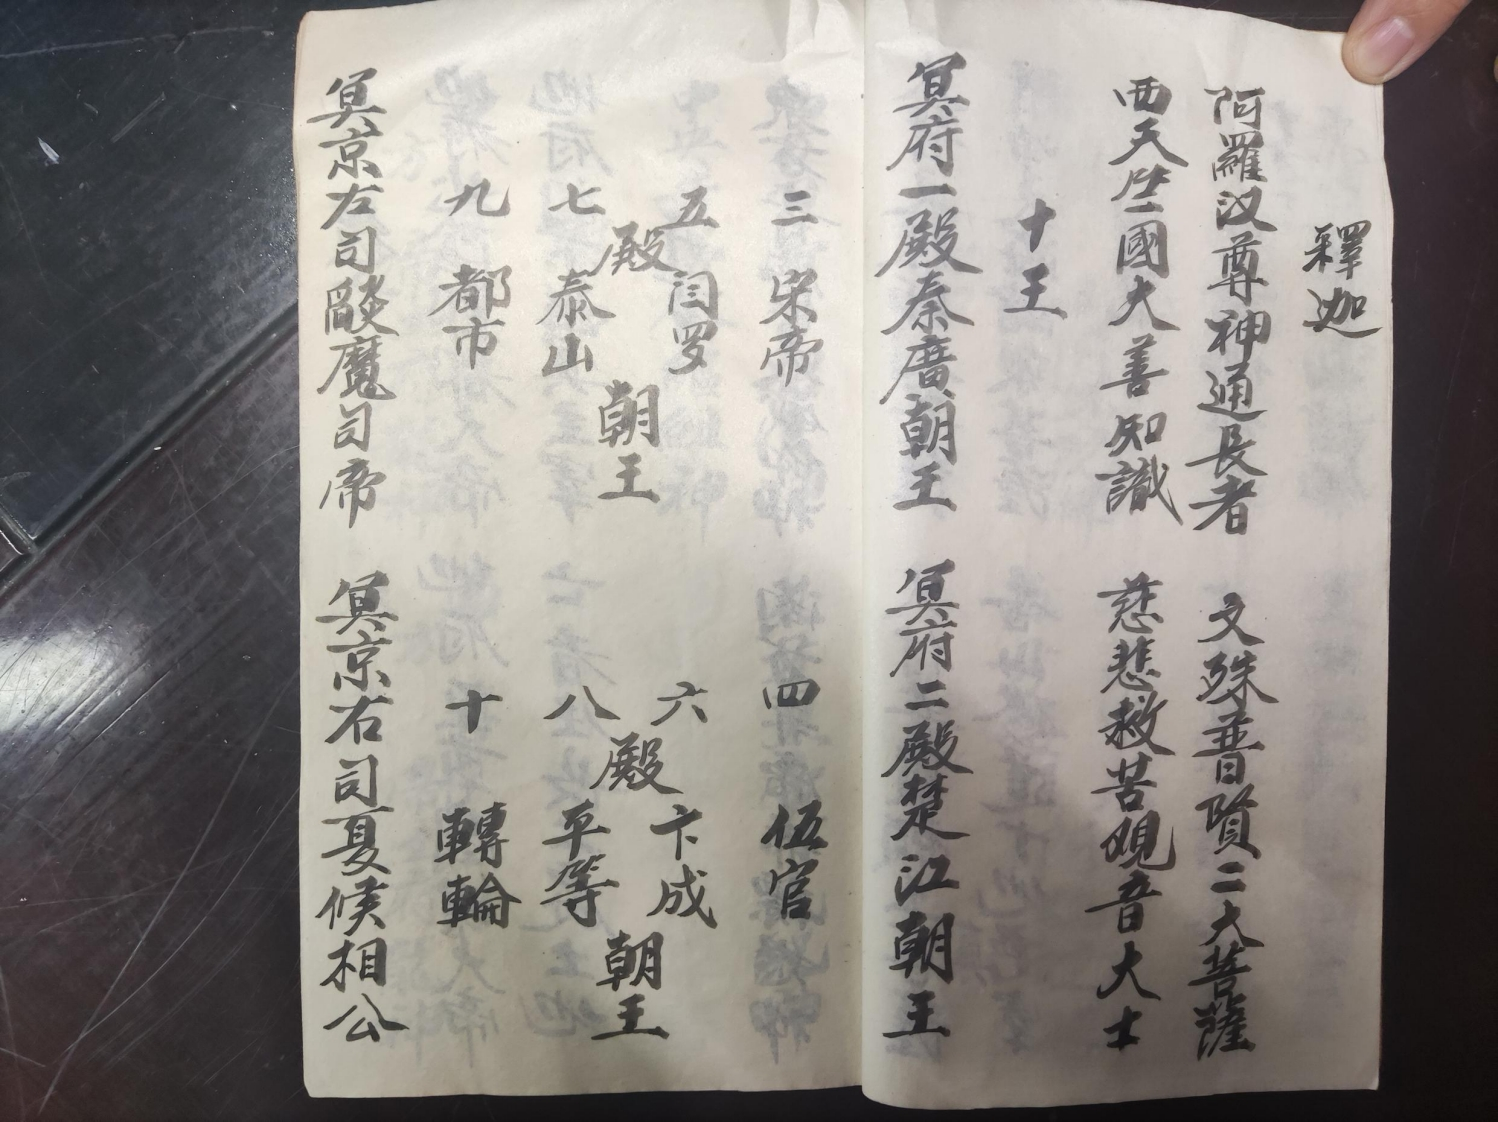 釋迦
阿羅汉尊神通長者 文殊普賢二大菩薩
西天竺國大善知識 慈悲救苦觀音大士
十王
冥府一殿秦廣朝王 冥府二殿楚江朝王
三 宋帝 四 伍官
五 闫罗 六 卞成
殿 朝王 殿 朝王
七 泰山 八 平等
九 都市 十 轉輪
冥京左司 魔司帝 冥京右司夏候相公